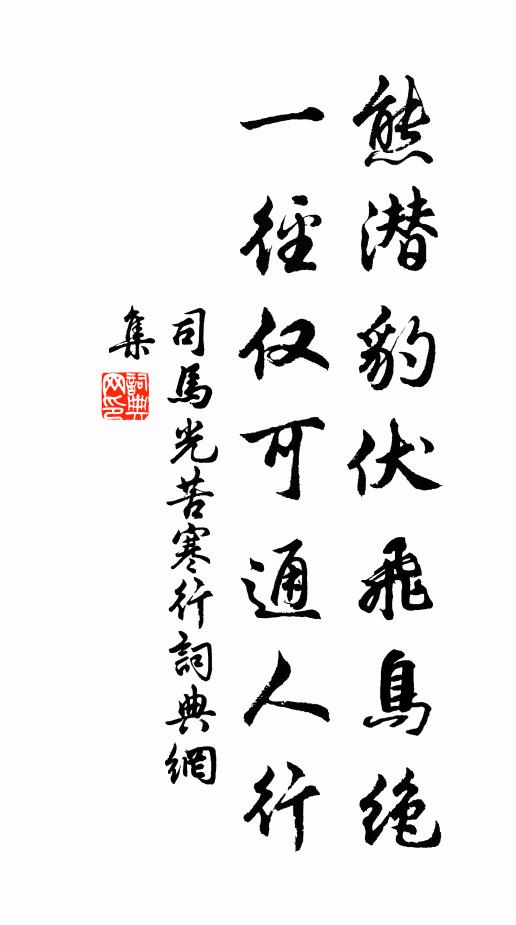 熊潜豹伏飛鳥绝
一徑仅可通人行
司馬光苦寒行詞典網
集
詞典网印